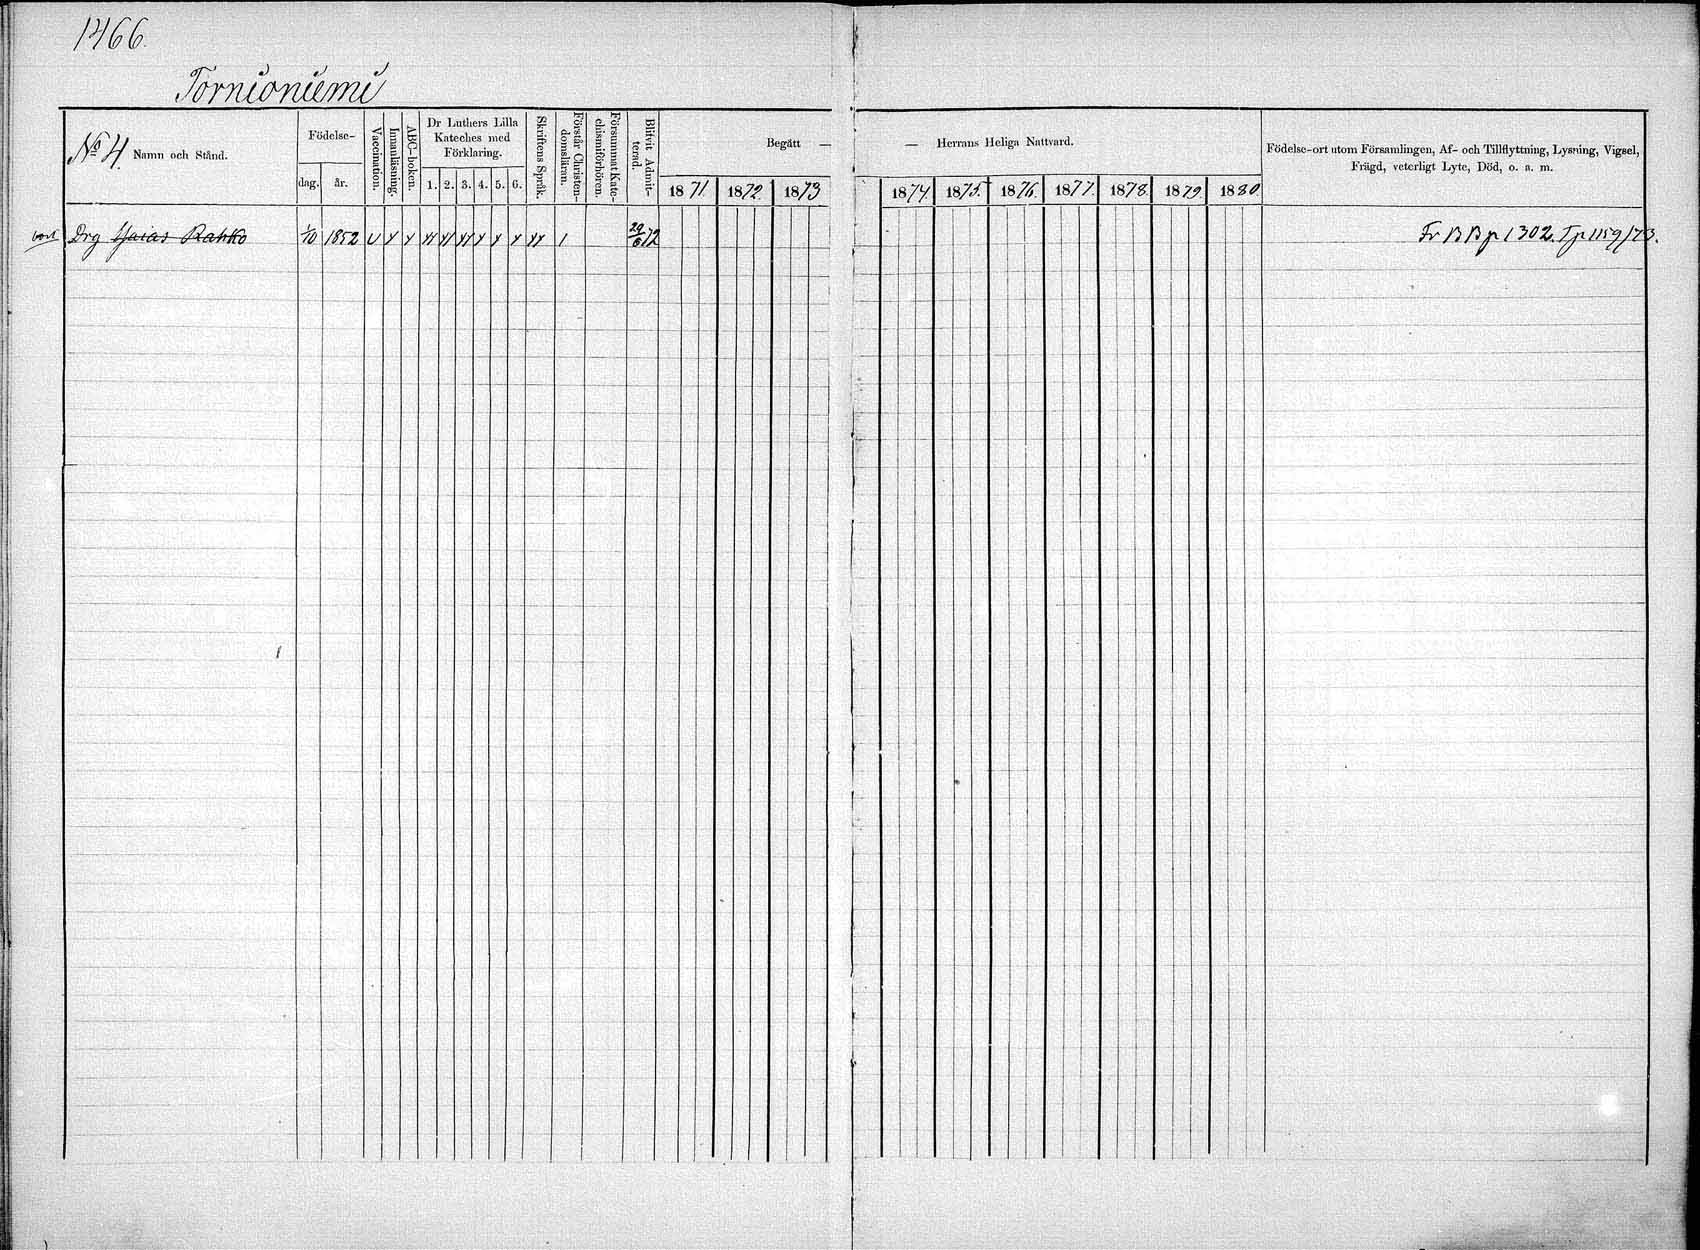 1466.
Tornioniemi
No 4. Namn och Stånd.
Födelse-
dag. år.
Vaccination.
Innanläsning.
ABC-boken.
Dr Luthers Lilla
Kateches med
Förklaring.
1. 2. 3. 4. 5. 6.
Skriftens Språk.
Förstår Christen-
domsläran.
Försummat Kate-
chismiförhören.
Blifvit Admit-
terad.
Begått —
1871 1872. 1873
— Herrans Heliga Nattvard.
1874. 1875. 1876. 1877. 1878. 1879. 1880
Födelse-ort utom Församlingen, Af- och Tillflyttning, Lysning, Vigsel,
Frägd, veterligt Lyte, Död, o. a. m.
bort Drg Esaias Rahko 1/10 1852 29/6 72 Fr BB p 1302. Tp 1159/73.